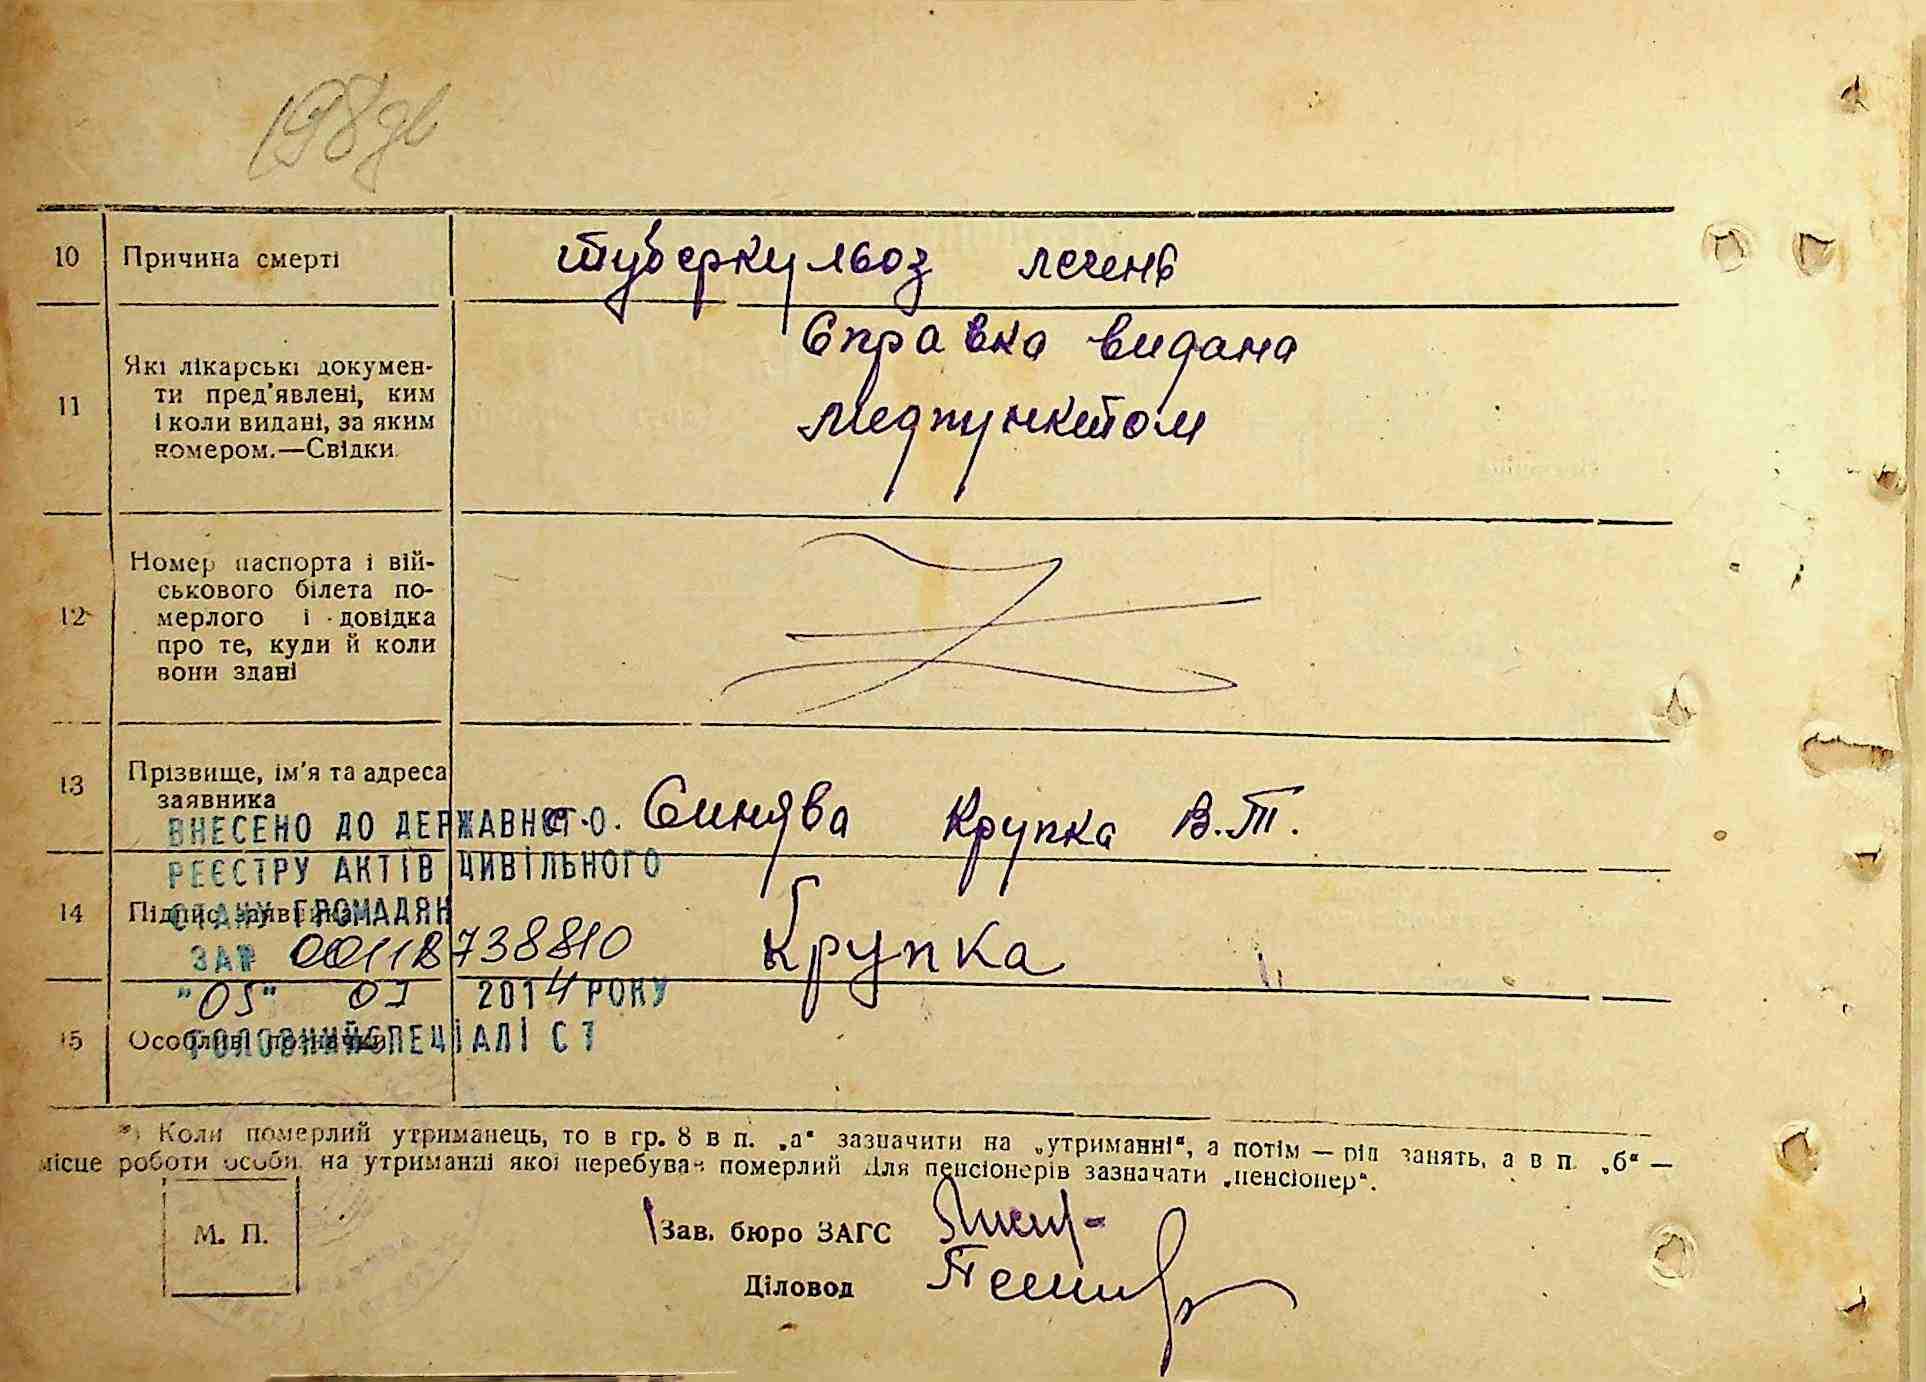 198 дв
10 Причина смерті туберкульоз легень
11 Які лікарські докумен-
ти пред'явлені, ким
і коли видані, за яким
номером.—Свідки
Справка видана
медпунктом
12 Номер паспорта і вій-
ськового білета по-
мерлого і довідка
про те, куди й коли
вони здані
13 Прізвище, ім'я та адреса
заявника
с. Синява Крупка В.Т.
ВНЕСЕНО ДО ДЕРЖАВНОГО
РЕЄСТРУ АКТІВ ЦИВІЛЬНОГО
14 Підпис заявника Крупка
СТАНУ ГРОМАДЯН
ЗА № 00118738810
"05" 2014 РОКУ
15 Особливі позначки
ГОЛОВНИЙ СПЕЦІАЛІСТ
*) Коли померлий утриманець, то в гр. 8 в п. „а“ зазначити на „утриманні“, а потім — рід занять, а в п. „б“ —
місце роботи особи, на утриманні якої перебував померлий Для пенсіонерів зазначати „пенсіонер“.
М. П.
Зав. бюро ЗАГС
Діловод